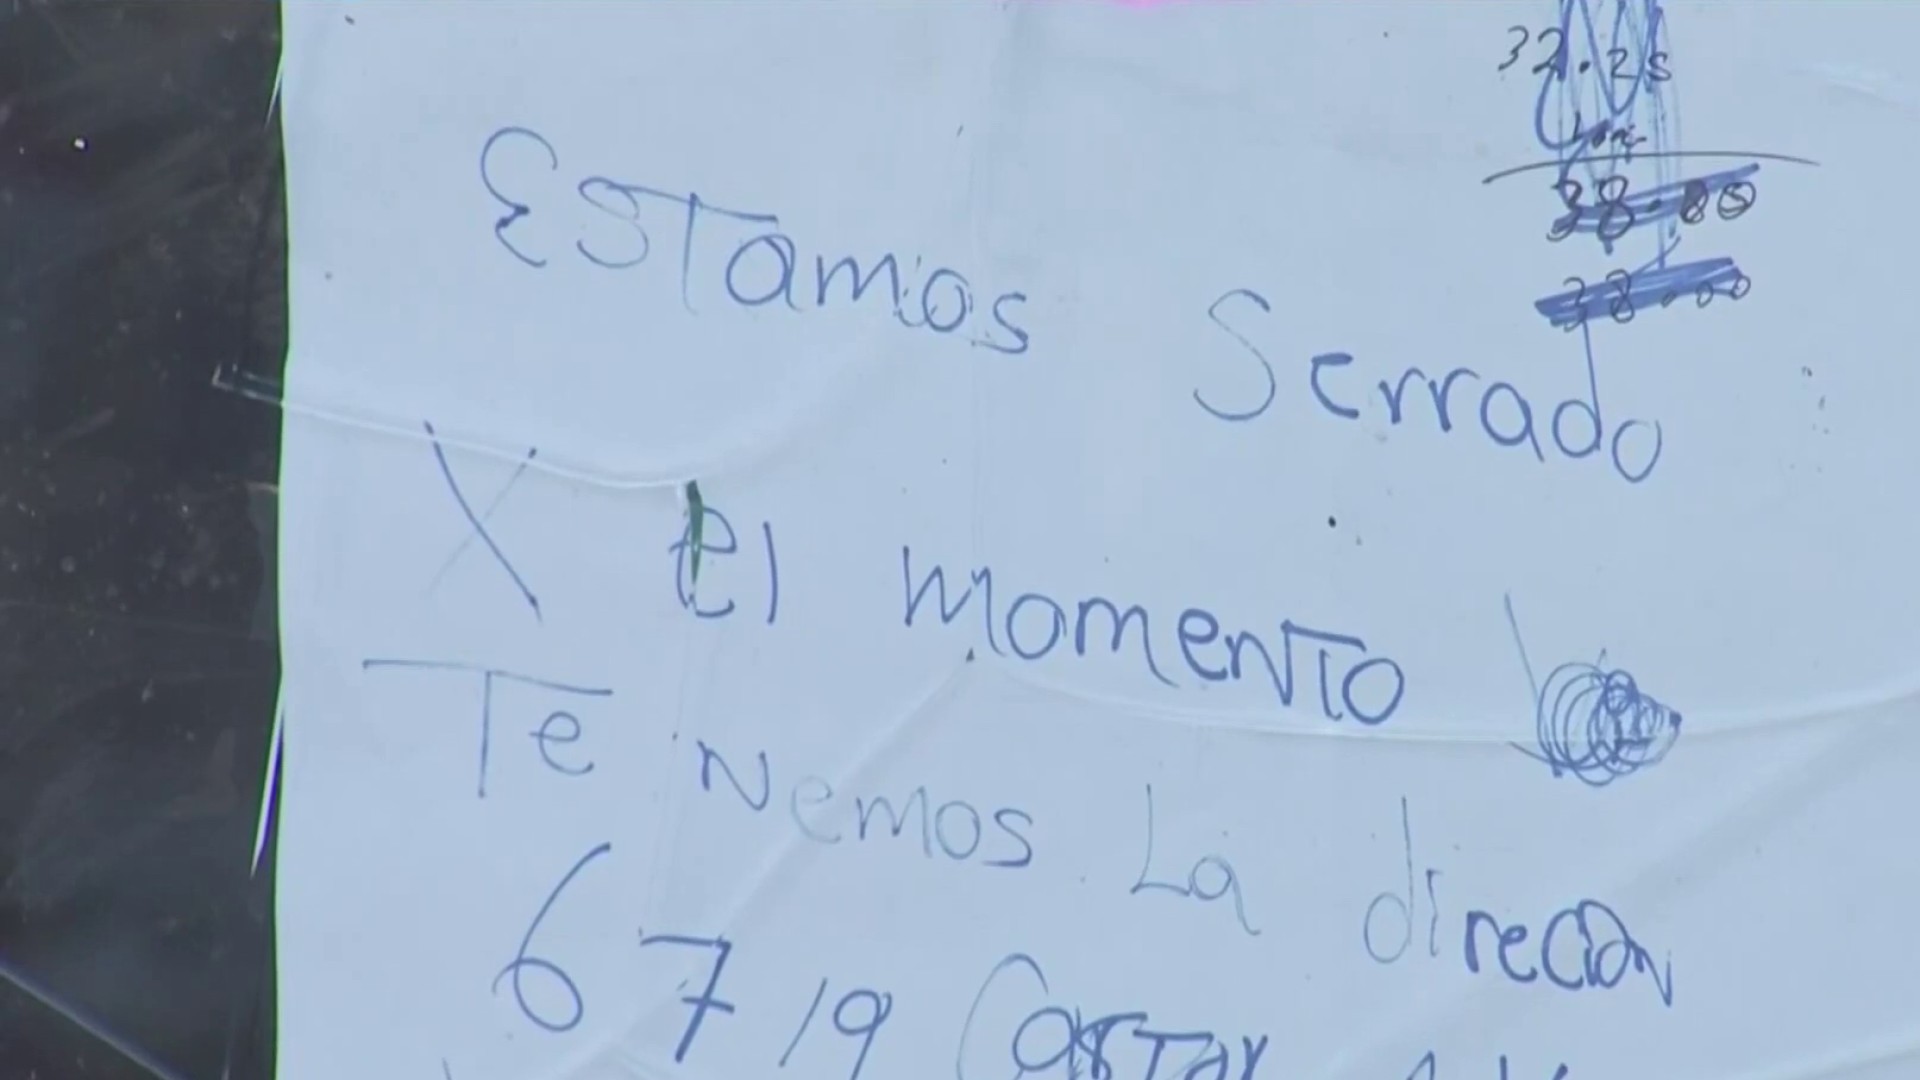 32.25
38.00
38.00
Estamos Serrado
X el momento
Te nemos La direcion
6719